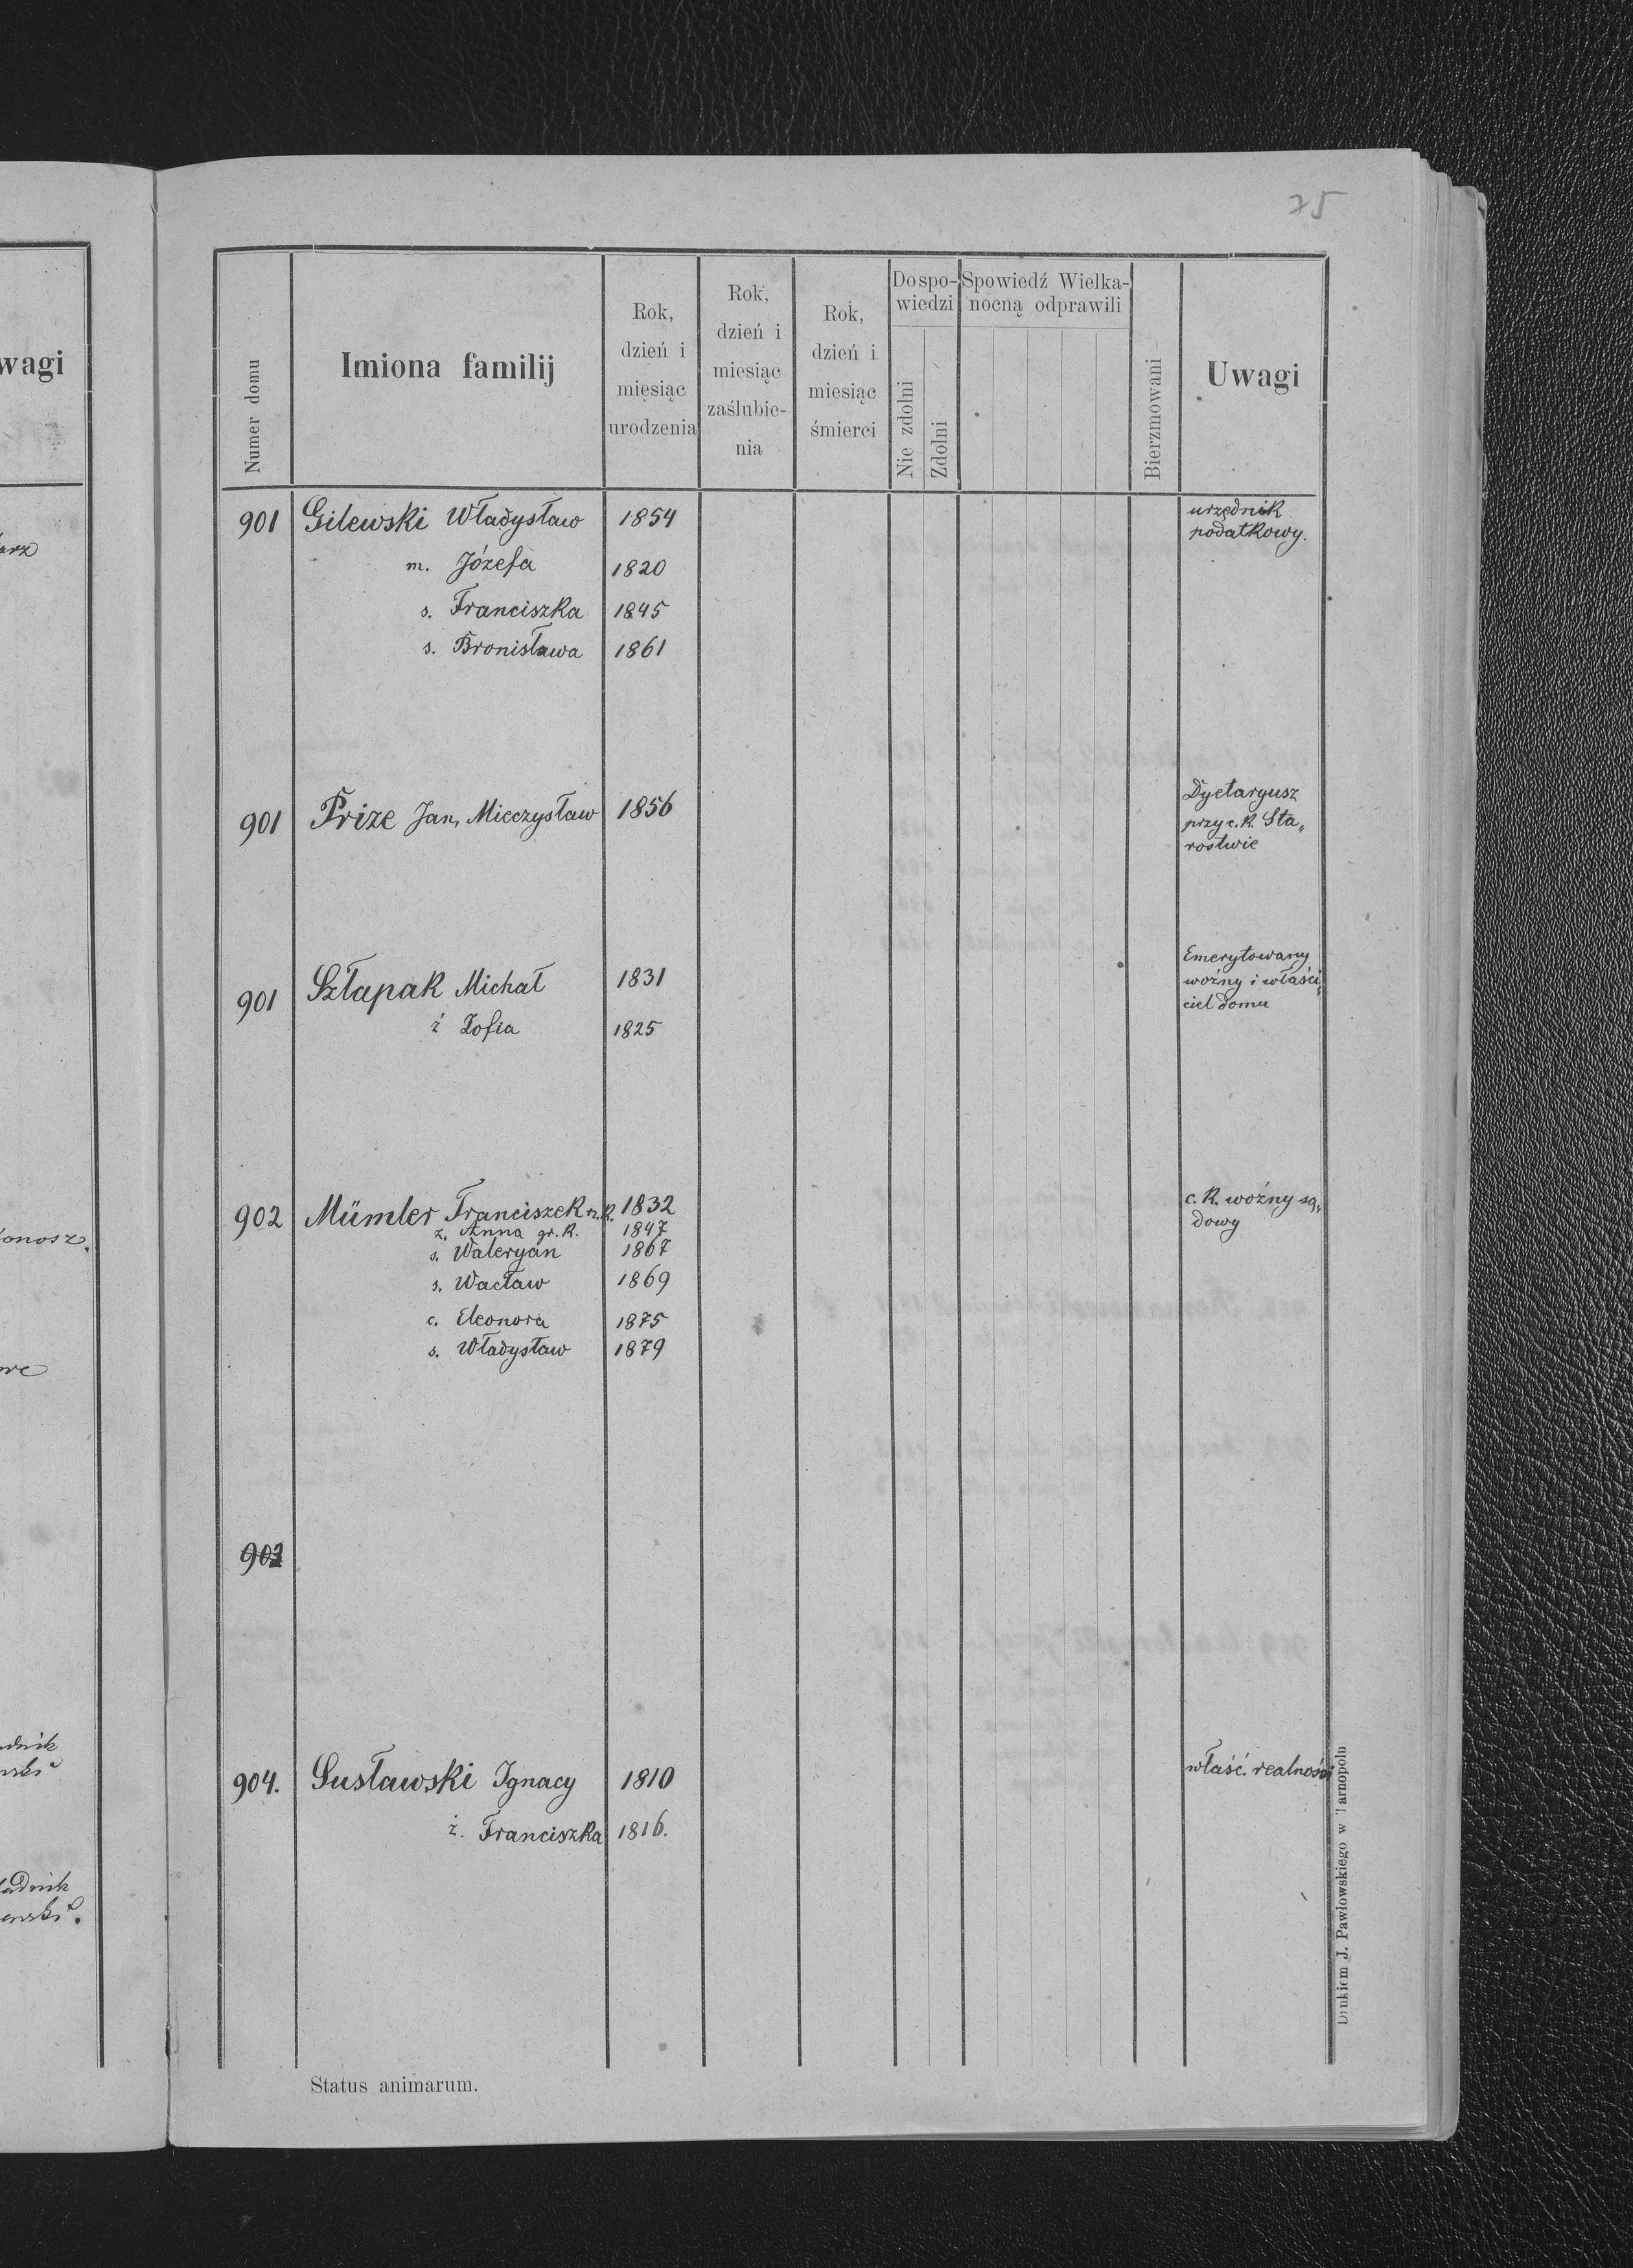 75
wagi
Numer domu
Imiona familij
Rok,
dzień i
miesiąc
urodzenia
Rok,
dzień i
miesiąc
zaślubie-
nia
Rok,
dzień i
miesiąc
śmierci
Do spo-
wiedzi
Nie zdolni
Zdolni
Spowiedź Wielka-
nocną odprawili
Bierzmowani
Uwagi
901 Gilewski Władysław 1854 urzędnik
podatkowy.
m. Józefa 1820
s. Franciszka 1845
s. Bronisława 1861
901 Prize Jan, Mieczysław 1856 Dyetaryusz
przy c. k. Sta„
rostwie
901 Szłapak Michał 1831 Emerytowany
woźny i właści„
ciel domu
ż Zofia 1825
902 Mümler Franciszek r. k. 1832 c. k. woźny są„
dowy
ż. Anna gr. k. 1847
s. Waleryan 1867
s. Wacław 1869
c. Eleonora 1875
s. Władysław 1879
903
904. Susławski Ignacy 1810 właść. realności
ż. Franciszka 1816.
Status animarum.
Drukiem J. Pawłowskiego w Tarnopolu